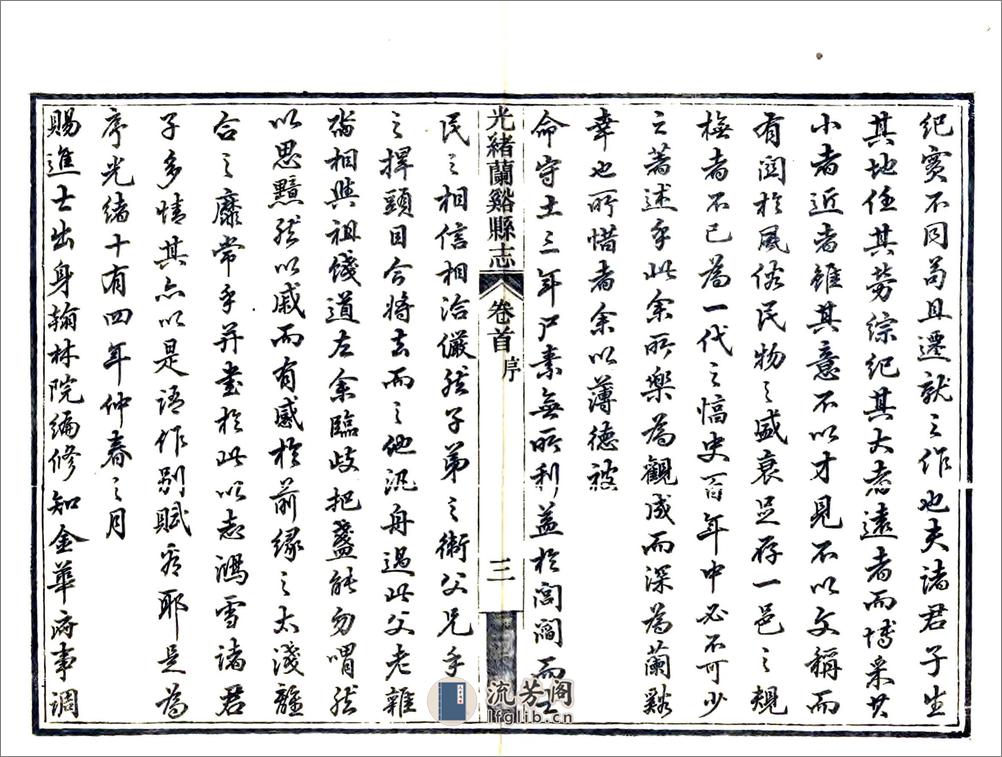 紀實不同苟且遷就之作也夫諸君子生
其地任其勞綜紀其大者遠者而博采其
小者近者雖其意不以才見不以文稱而
有關於風俗民物之盛衰足存一邑之規
橅者不已為一代之信史百年中必不可少
之著述乎此余所樂為觀成而深為蘭谿
幸也所惜者余以薄德被
命守土三年尸素無所利益於閭閻而士
光緒蘭谿縣志
卷首
序
三
民之相信相洽儼然子弟之衛父兄手
之捍頭目今將去而之他汎舟過此父老雜
沓相與祖餞道左余臨歧把盞能勿喟然
以思黯然以戚而有感於前緣之太淺離
合之靡常乎并書於此以志鴻雪諸君
子多情其亦以是語作別賦看耶是為
序光緒十有四年仲春之月
賜進士出身翰林院編修知金華府事調
流芳阁
lfglib.cn